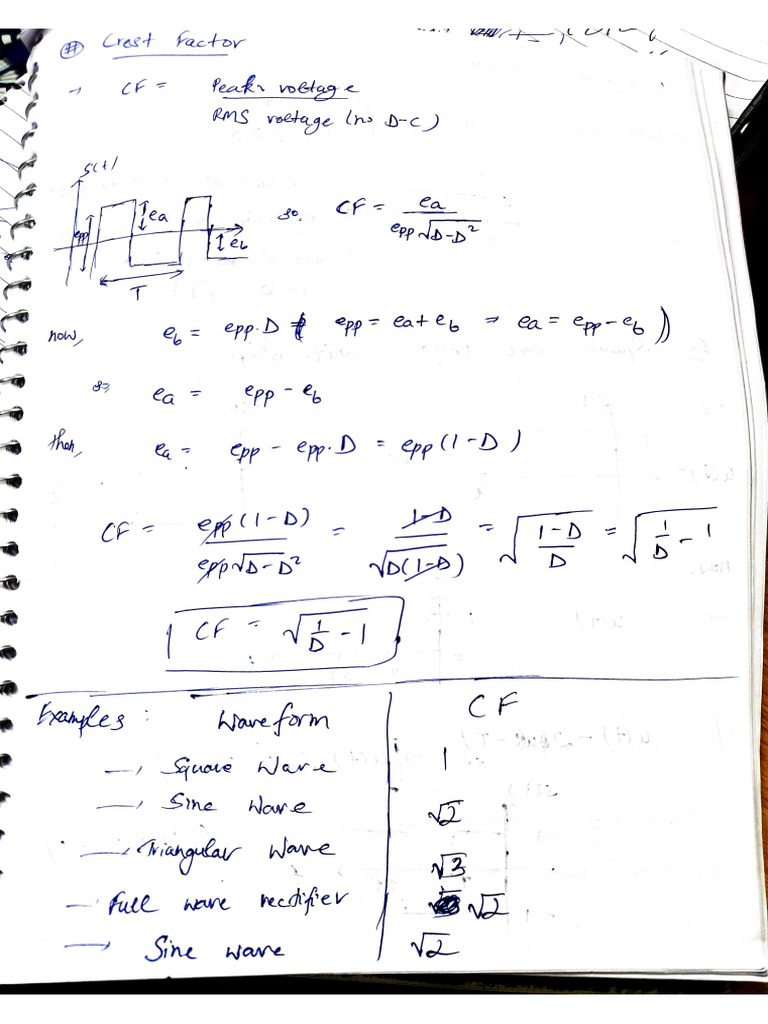 # Crest Factor
→ CF = Peak voltage / RMS voltage (no D-C)
s(t)
epp
ea
eb
T
so, CF = ea / epp√D-D²
now, eb = epp.D ( epp = ea + eb ⇒ ea = epp - eb )
so ea = epp - eb
then, ea = epp - epp.D = epp (1-D)
CF = epp (1-D) / epp√D-D² = 1-D / √D(1-D) = √(1-D / D) = √(1/D - 1)
CF = √(1/D - 1)
Examples: Waveform CF
→ Square Wave 1
→ Sine Wave √2
→ Triangular Wave √3
- Full wave rectifier √2
→ Sine wave √2